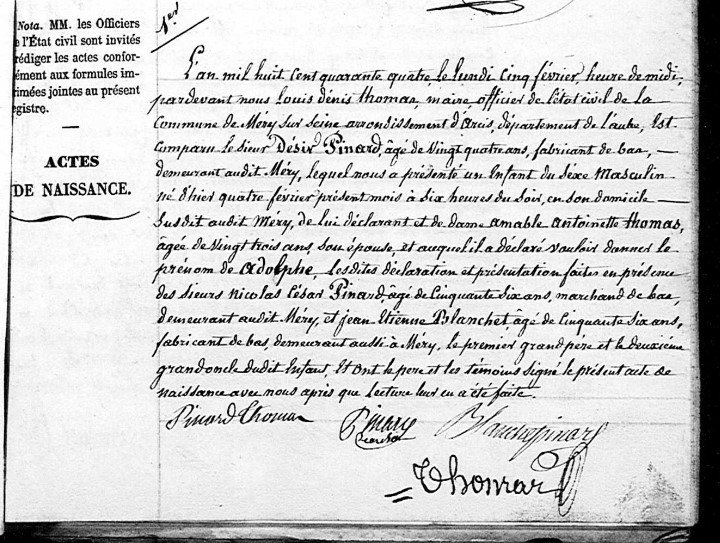 Nota. MM. les Officiers
e l'État civil sont invités
rédiger les actes confor-
ément aux formules im-
rimées jointes au présent
egistre.
ACTES
DE NAISSANCE.
L'an mil huit cent quarante quatre, le lundi cinq février, heure de midi,
pardevant nous Louis Dénis Thomas, maire, officier de l'état civil de la
Commune de Mery sur Seine arrondissement d'Arcis, département de l'aube, Est
Comparu le sieur Desir Pinard, âgé de Vingt quatre ans, fabricant de bas, —
demeurant audit Méry, lequel nous a présenté un Enfant du Sexe Masculin
né d'hier quatre février présent mois à Six heures du Soir, en son domicile —
Susdit audit Méry, de lui déclarant et de dame amable antoinette thomas,
âgée de Vingt trois ans, Son épouse, et auquel il a déclaré vouloir donner le
prénom de adolphe, lesdites déclaration et présentation faites en présence
des sieurs nicolas César Pinard âgé de Cinquante Six ans, marchand de bas,
demeurant audit Méry, et jean Etienne Blanchet âgé de Cinquante Six ans,
fabricant de bas, demeurant aussi à Mery, le premier grand pere et le deuxième
grand oncle dudit Enfant, Et Ont le pere et les témoins signé le présent acte de
naissance avec nous après que Lecture leur en a été faite.
Pinard Thomas Pinard
Thomas